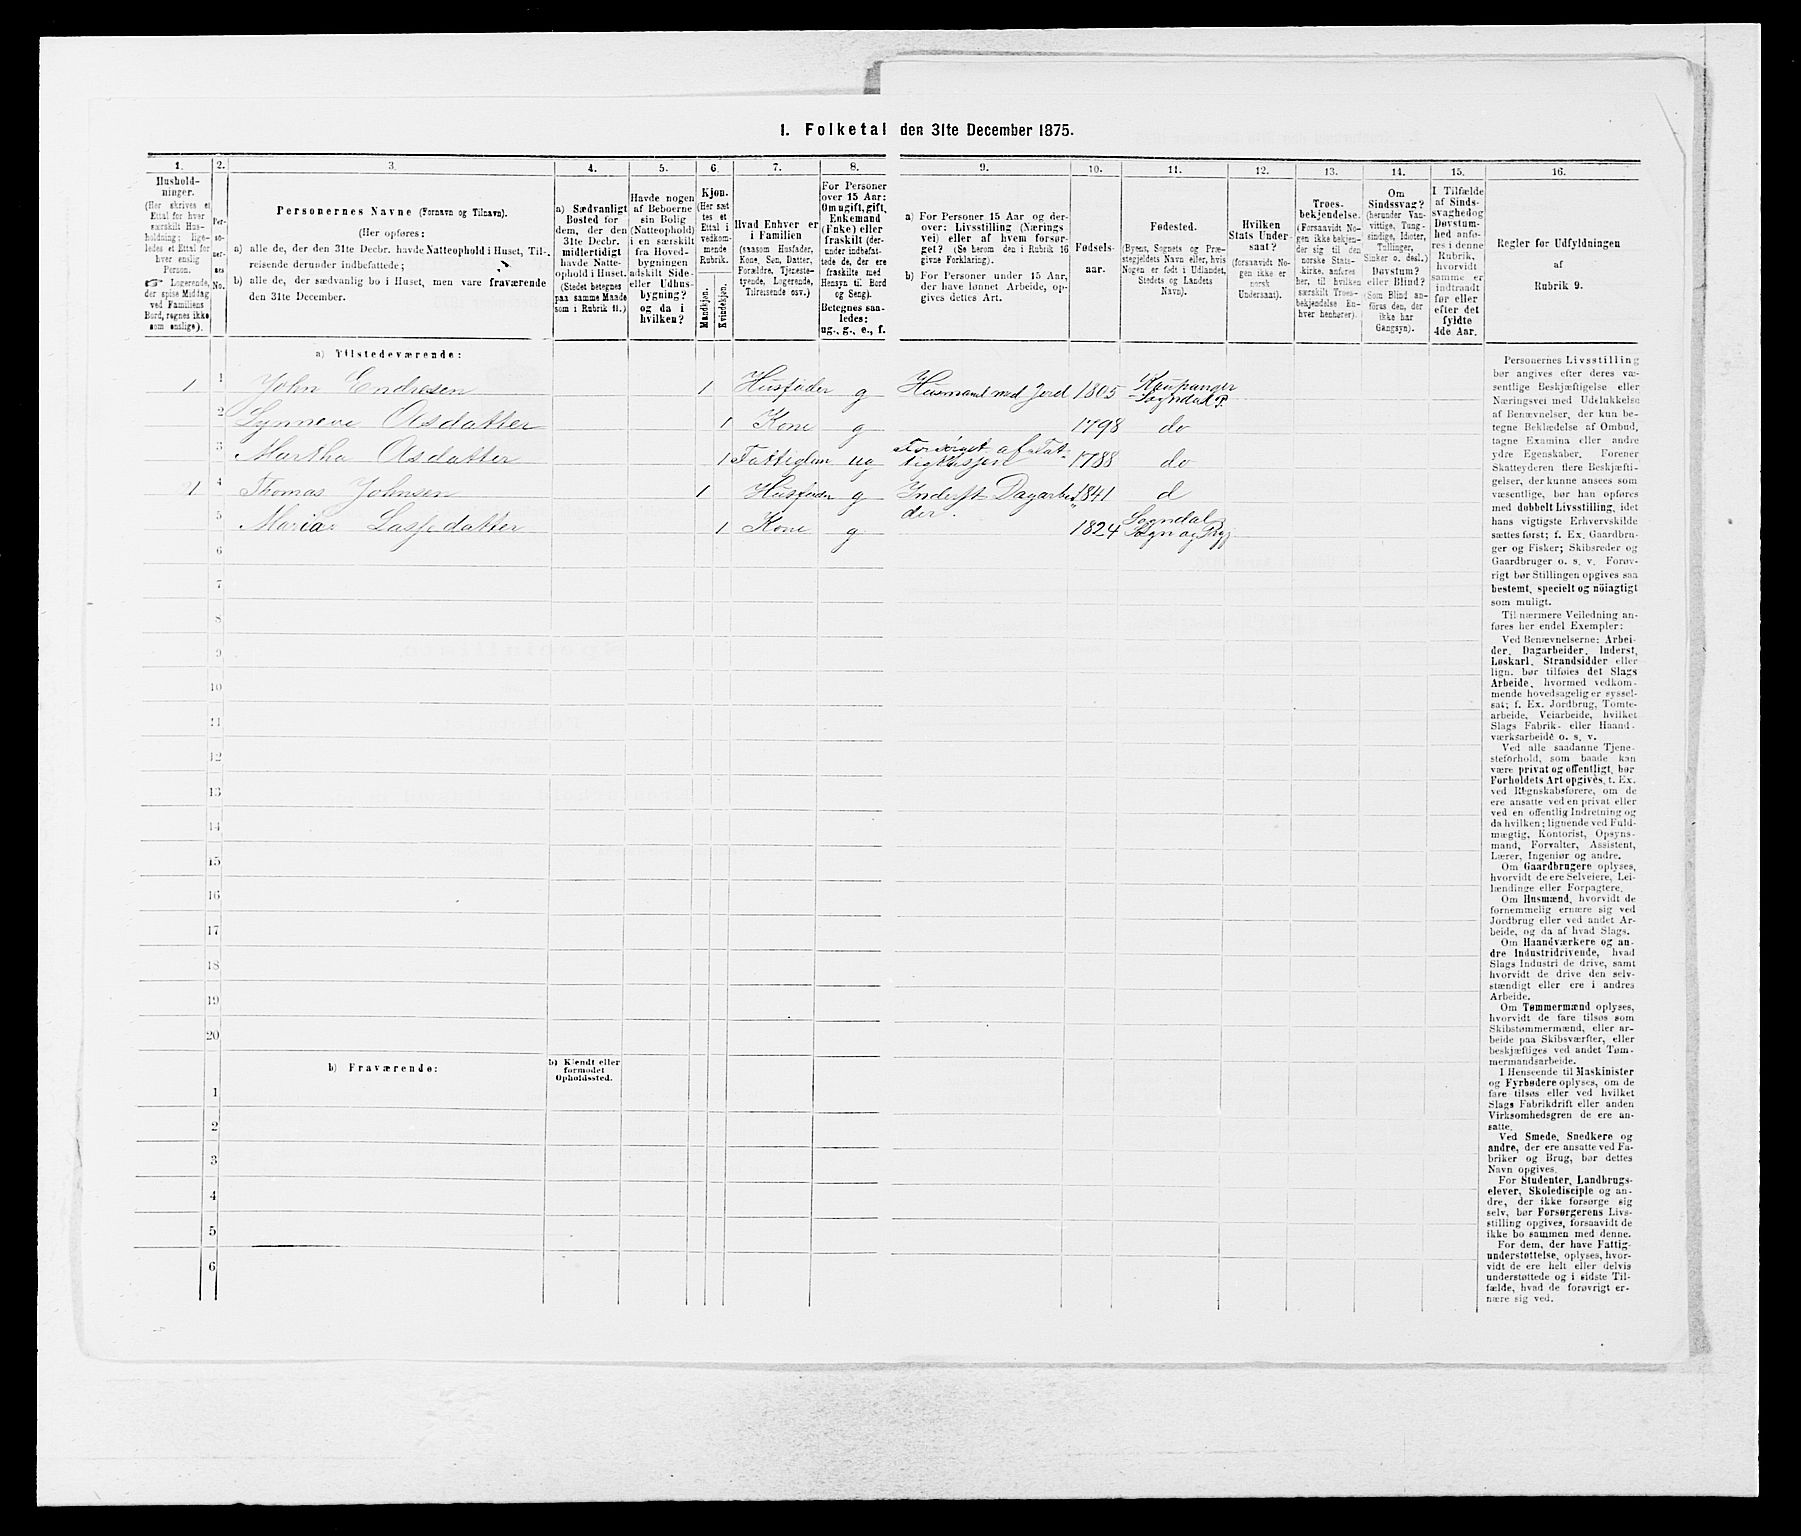 I. Folketal den 31te December 1875.
1. 2. 3. 4. 5. 6. 7. 8. 9. 10. 11. 12. 13. 14. 15. 16.
Hushold-
ninger.
(Her skrives et
Ettal for hver
særskilt Hus-
holdning; lige-
ledes et Ettal for
hver enslig
Person.
☞ Logerende,
der spise Middag
ved Familiens
Bord, regnes ikke
som enslige).
Per-
so-
ner-
nes
No.
Personernes Navne (Fornavn og Tilnavn).
(Her opføres:
a) alle de, der den 31te Decbr. havde Natteophold i Huset, Til-
reisende derunder indbefattede;
b) alle de, der sædvanlig bo i Huset, men vare fraværende
den 31te December.
a) Sædvanligt
Bosted for
dem, der den
31te Decbr.
midlertidigt
havde Natte-
ophold i Huset.
(Stedet betegnes
paa samme Maade
som i Rubrik 11.)
Havde nogen
af Beboerne
sin Bolig
(Natteophold)
i en særskilt
fra Hoved-
bygningen
adskilt Side-
eller Udhus-
bygning?
og da i
hvilken?
Kjøn.
(Her sæt
tes et
Ettal i
vedkom-
mende
Rubrik.
Mandkjøn.
Kvindekjøn.
Hvad Enhver er
i Familien
(saasom Husfader,
Kone, Søn, Datter,
Forældre, Tjeneste-
tyende, Logerende,
Tilreisende osv.)
For Personer
over 15 Aar:
Om ugift, gift,
Enkemand
(Enke) eller
fraskilt (der-
under indbefat-
tede de, der ere
fraskilte med
Hensyn til Bord
og Seng).
Betegnes saa-
ledes:
ug., g., e., f.
a) For Personer 15 Aar og der-
over: Livsstilling (Nærings
vei) eller af hvem forsør-
get? (Se herom den i Rubrik 16
givne Forklaring).
b) For Personer under 15 Aar,
der have lønnet Arbeide, op-
gives dettes Art.
Fødsels-
aar.
Fødested.
(Byens, Sognets og Præ-
stegjeldets Navn eller, hvis
Nogen er født i Udlandet,
Stedets og Landets
Navn).
Hvilken
Stats Under
saat?
(forsaavidt No-
gen ikke er
norsk
Undersaat).
Troes-
bekjendelse.
(Forsaavidt No-
gen ikke bekjen-
der sig til den
norske Stats-
kirke, anføres
her, til hvilken
særskilt Troes-
bekjendelse En-
hver henhører).
Om
Sindssvag?
(herunder Van-
vittige, Tung-
sindige, Idioter,
Tullinger,
Sinker o. desl.)
Døvstum?
eller Blind?
(Som Blind an-
føres den, der
ikke har
Gangsyn).
I Tilfælde
af Sinds-
svaghed og
Døvstum-
hed anfø-
res i denne
Rubrik,
hvorvidt
samme er
indtraadt
før eller
efter det
fyldte
4de Aar.
Regler for Udfyldningen
af
Rubrik 9.
a) Tilstedeværende:
1 1 John Endresen 1 Husfader g Husmand med Jord 1805 Kaupanger
Sogndal P.
2 Synneve Asdatter 1 Kone g 1798 do
3 Martha Asdatter 1 Fattiglem ug Forsørget af Fat-
tigkassen 1788 do
4 Thomas Johnsen 1 Husfader g Inderst Dagarbei-
der 1841 d
5 Maria Lassedatter 1 Kone g 1824 Sogndal
Sogn og
6
7
8
9
10
11
12
13
14
15
16
17
18
19
20
b) Fraværende:
b) Kjendt eller
formodet
Opholdssted.
1
2
3
4
5
6
Personernes Livsstilling
bør angives efter deres væ-
sentlige Beskjæftigelse eller
Næringsvei med Udelukkelse
af Benævnelser, der kun be-
tegne Beklædelse af Ombud,
tagne Examina eller andre
ydre Egenskaber. Forener
Skatteyderen flere Beskjæfti-
gelser, der kunne ansees som
væsentlige, bør han opføres
med dobbelt Livsstilling, idet
hans vigtigste Erhvervskilde
sættes først; f. Ex. Gaardbru-
ger og Fisker; Skibsreder og
Gaardbruger o. s. v. Forøv-
rigt bør Stillingen opgives saa
bestemt, specielt og nöiagtigt
som muligt.
Til nærmere Veiledning an-
føres her endel Exempler:
Ved Benævnelserne: Arbei-
der, Dagarbeider, Inderst,
Løskarl, Strandsidder eller
lign. bør tilføies det Slags
Arbeide, hvormed vedkom-
mende hovedsagelig er syssel-
sat; f. Ex. Jordbrug, Tomte-
arbeide, Veiarbeide, hvilket
Slags Fabrik- eller Haand-
værksarbeide o. s. v.
Ved alle saadanne Tjene-
steforhold, som baade kan
være privat og offentligt, bør
Forholdets Art opgives, t. Ex.
ved Regnskabsførere, om de
ere ansatte ved en privat eller
ved en offentlig Indretning og
da hvilken; lignende ved Fuld-
mægtig, Kontorist, Opsyns-
mand, Forvalter, Assistent,
Lærer, Ingeniør og andre.
Om Gaardbrugere oplyses,
hvorvidt de ere Selveiere, Lei-
lændinge eller Forpagtere.
Om Husmænd, hvorvidt de
fornemmelig ernære sig ved
Jordbrug eller ved andet Ar-
beide, og da af hvad Slags.
Om Haandværkere og an-
dre Industridrivende, hvad
Slags Industri de drive, samt
hvorvidt de drive den selv-
stændigt eller ere i andres
Arbeide.
Om Tømmermænd oplyses,
hvorvidt de fare tilsøs som
Skibstømmermænd, eller ar-
beide paa Skibsværfter, eller
beskjæftiges ved andet Tøm-
mermandsarbeide.
I Henseende til Maskinister
og Fyrbødere oplyses, om de
fare tilsøs eller ved hvilket
Slags Fabrikdrift eller anden
Virksomhedsgren de ere an-
satte.
Ved Smede, Snedkere og
andre, der ere ansatte ved Fa-
briker og Brug, bør dettes
Navn opgives.
For Studenter, Landbrugs-
elever, Skoledisciple og an-
dre, der ikke forsørge sig
selv, bør Forsørgerens Livs-
stilling opgives, forsaavidt de
ikke bo sammen med denne.
For dem, der have Fattig-
understøttelse, oplyses, hvor-
vidt de ere helt eller delvis
understøttede og i sidste Til-
fælde, hvad de forøvrigt er-
nære sig ved.